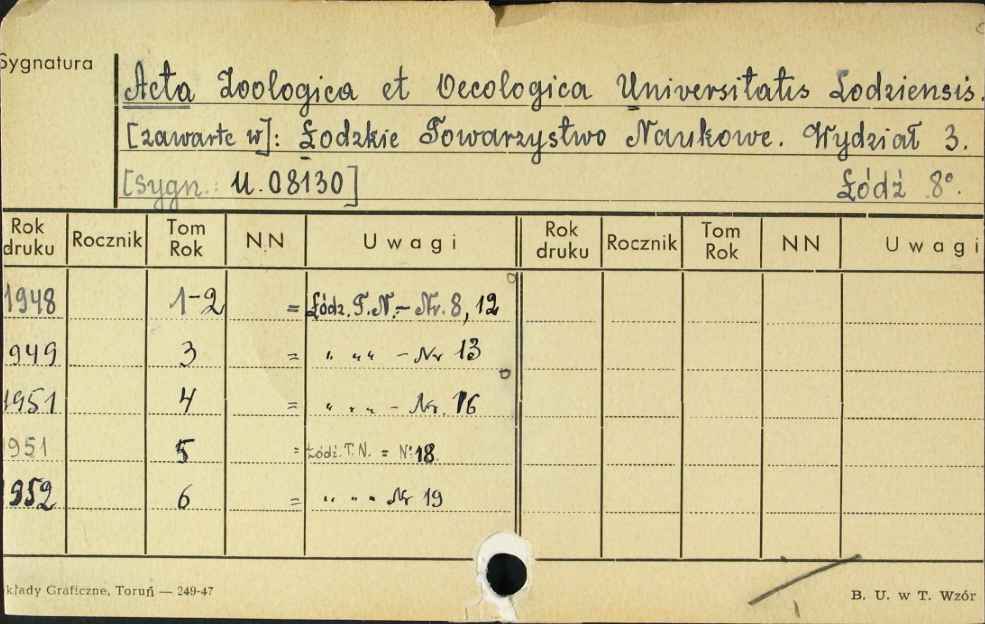 Sygnatura
Acta Zoologica et Oecologica Universitatis Lodziensis.
[zawarte w]: Łodzkie Towarzystwo Naukowe. Wydział 3.
[sygn.: U.08130] Łódź 8°.
Rok druku Rocznik Tom Rok NN Uwagi Rok druku Rocznik Tom Rok NN Uwagi
1948 1-2 = Łódź. T.N. - Nr. 8, 12
1949 3 = " " " - Nr 13
1951 4 = " " " - Nr. 16
1951 5 = Łódź. T.N. = Nr 18.
1952 6 = " " " Nr 19
kłady Graficzne, Toruń — 249-47 B. U. w T. Wzór